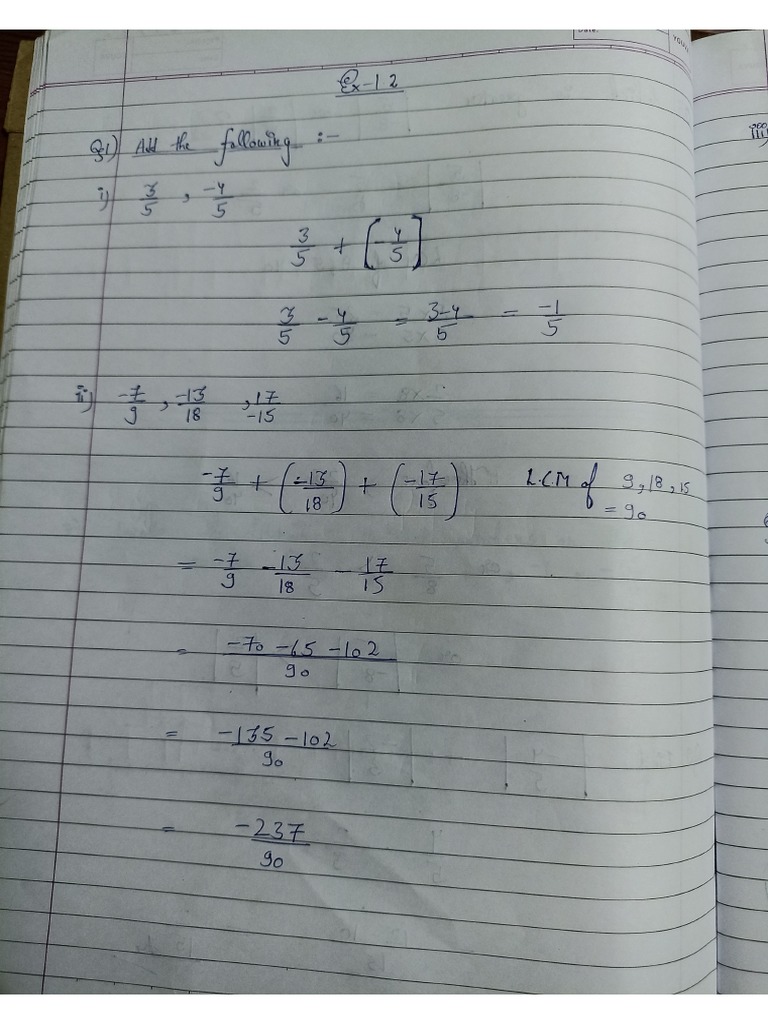 Ex-1.2
Q1) Add the following :-
i) 3/5 , -4/5
3/5 + [-4/5]
3/5 - 4/5 = 3-4/5 = -1/5
ii) -7/9 , -13/18 , 17/-15
-7/9 + (-13/18) + (-17/15) L.C.M of 9, 18, 15
= 90
= -7/9 -13/18 - 17/15
= -70 -65 -102/90
= -135 -102/90
= -237/90
iii)